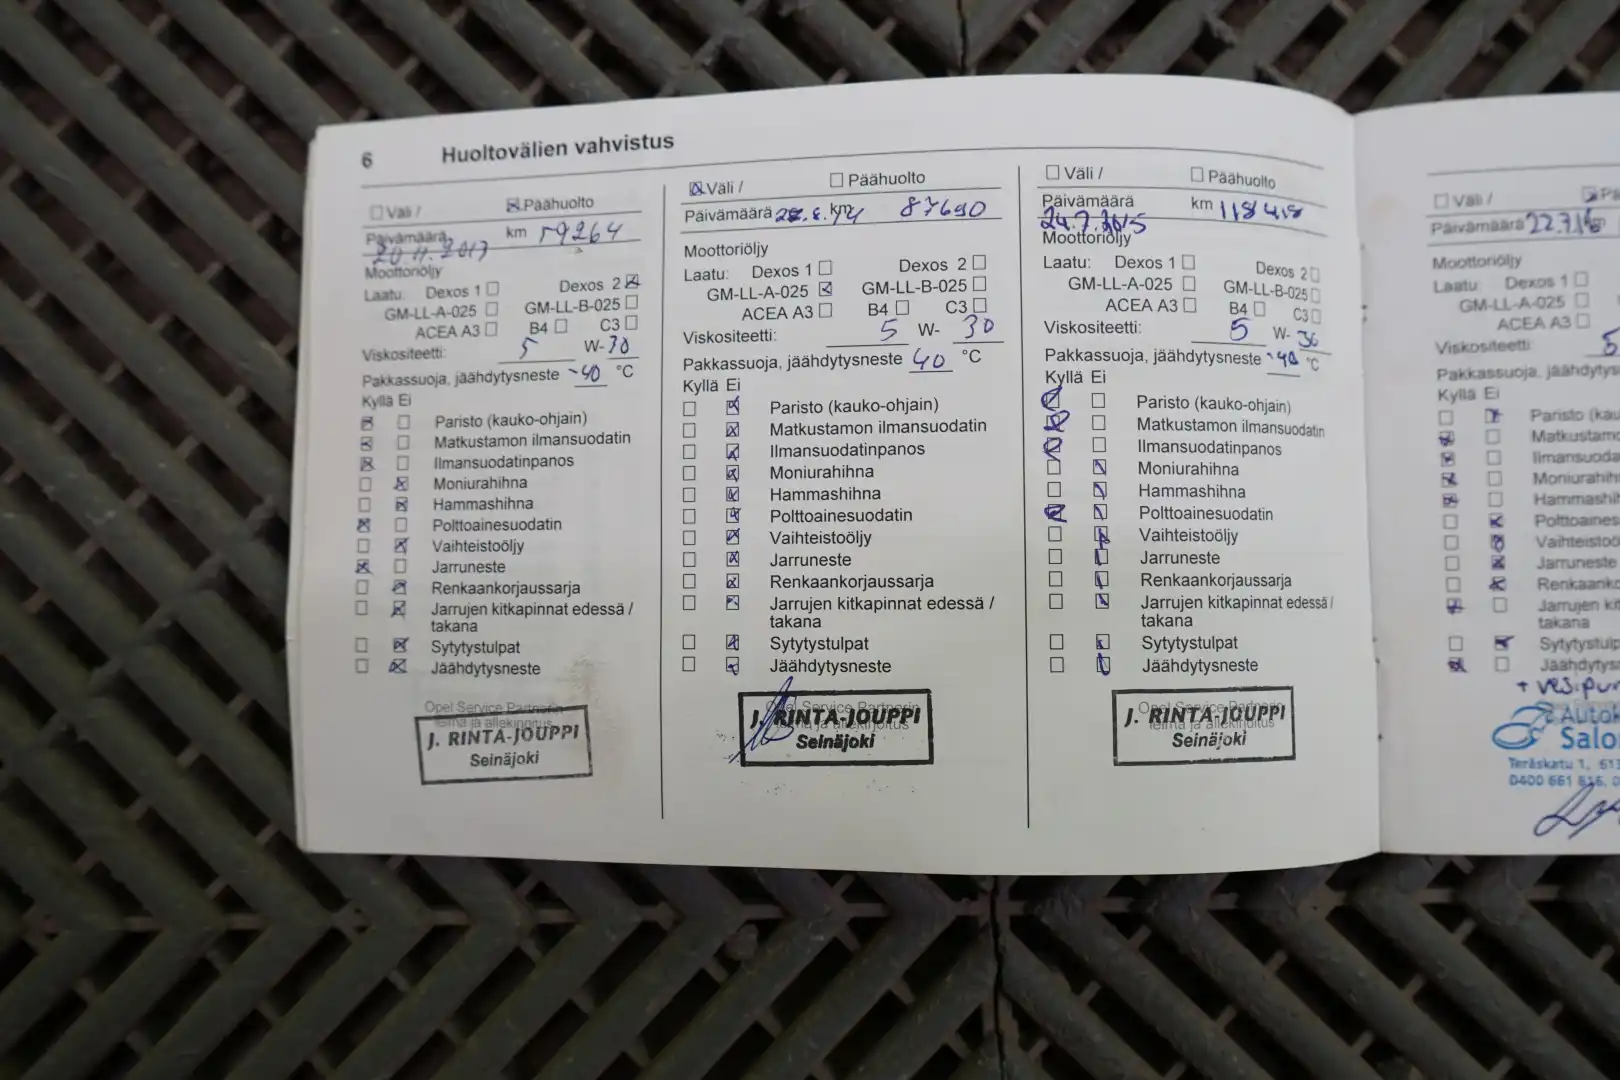 6 Huoltovälien vahvistus
Väli / Päähuolto
Päivämäärä km 59264
20.11.2013
Moottoriöljy
Laatu: Dexos 1 Dexos 2
GM-LL-A-025 GM-LL-B-025
ACEA A3 B4 C3
Viskositeetti: 5 W-30
Pakkassuoja, jäähdytysneste -40 °C
Kyllä Ei
Paristo (kauko-ohjain)
Matkustamon ilmansuodatin
Ilmansuodatinpanos
Moniurahihna
Hammashihna
Polttoainesuodatin
Vaihteistoöljy
Jarruneste
Renkaankorjaussarja
Jarrujen kitkapinnat edessä /
takana
Sytytystulpat
Jäähdytysneste
Opel Service Partnerin
leima ja allekirjoitus
J. RINTA-JOUPPI
Seinäjoki
Väli / Päähuolto
Päivämäärä km 87690
Moottoriöljy
Laatu: Dexos 1 Dexos 2
GM-LL-A-025 GM-LL-B-025
ACEA A3 B4 C3
Viskositeetti: 5 W- 30
Pakkassuoja, jäähdytysneste 40 °C
Kyllä Ei
Paristo (kauko-ohjain)
Matkustamon ilmansuodatin
Ilmansuodatinpanos
Moniurahihna
Hammashihna
Polttoainesuodatin
Vaihteistoöljy
Jarruneste
Renkaankorjaussarja
Jarrujen kitkapinnat edessä /
takana
Sytytystulpat
Jäähdytysneste
Opel Service Partnerin
leima ja allekirjoitus
J. RINTA-JOUPPI
Seinäjoki
Väli / Päähuolto
Päivämäärä km 118418
24.7.2015
Moottoriöljy
Laatu: Dexos 1 Dexos 2
GM-LL-A-025 GM-LL-B-025
ACEA A3 B4 C3
Viskositeetti: 5 W- 30
Pakkassuoja, jäähdytysneste -40 °C
Kyllä Ei
Paristo (kauko-ohjain)
Matkustamon ilmansuodatin
Ilmansuodatinpanos
Moniurahihna
Hammashihna
Polttoainesuodatin
Vaihteistoöljy
Jarruneste
Renkaankorjaussarja
Jarrujen kitkapinnat edessä /
takana
Sytytystulpat
Jäähdytysneste
Opel Service Partnerin
leima ja allekirjoitus
J. RINTA-JOUPPI
Seinäjoki
Väli / Pä
Päivämäärä 22.7.16
Moottoriöljy
Laatu: Dexos 1
GM-LL-A-025
ACEA A3
Viskositeetti: 5
Pakkassuoja, jäähdytys
Kyllä Ei
Paristo (kau
Matkustamo
Ilmansuoda
Moniurahih
Hammashih
Polttoaines
Vaihteistoö
Jarruneste
Renkaanko
Jarrujen kit
takana
Sytytystulp
Jäähdytys
+ vesipum
Autok
Salo
Teräskatu 1, 613
0400 661 816, 0